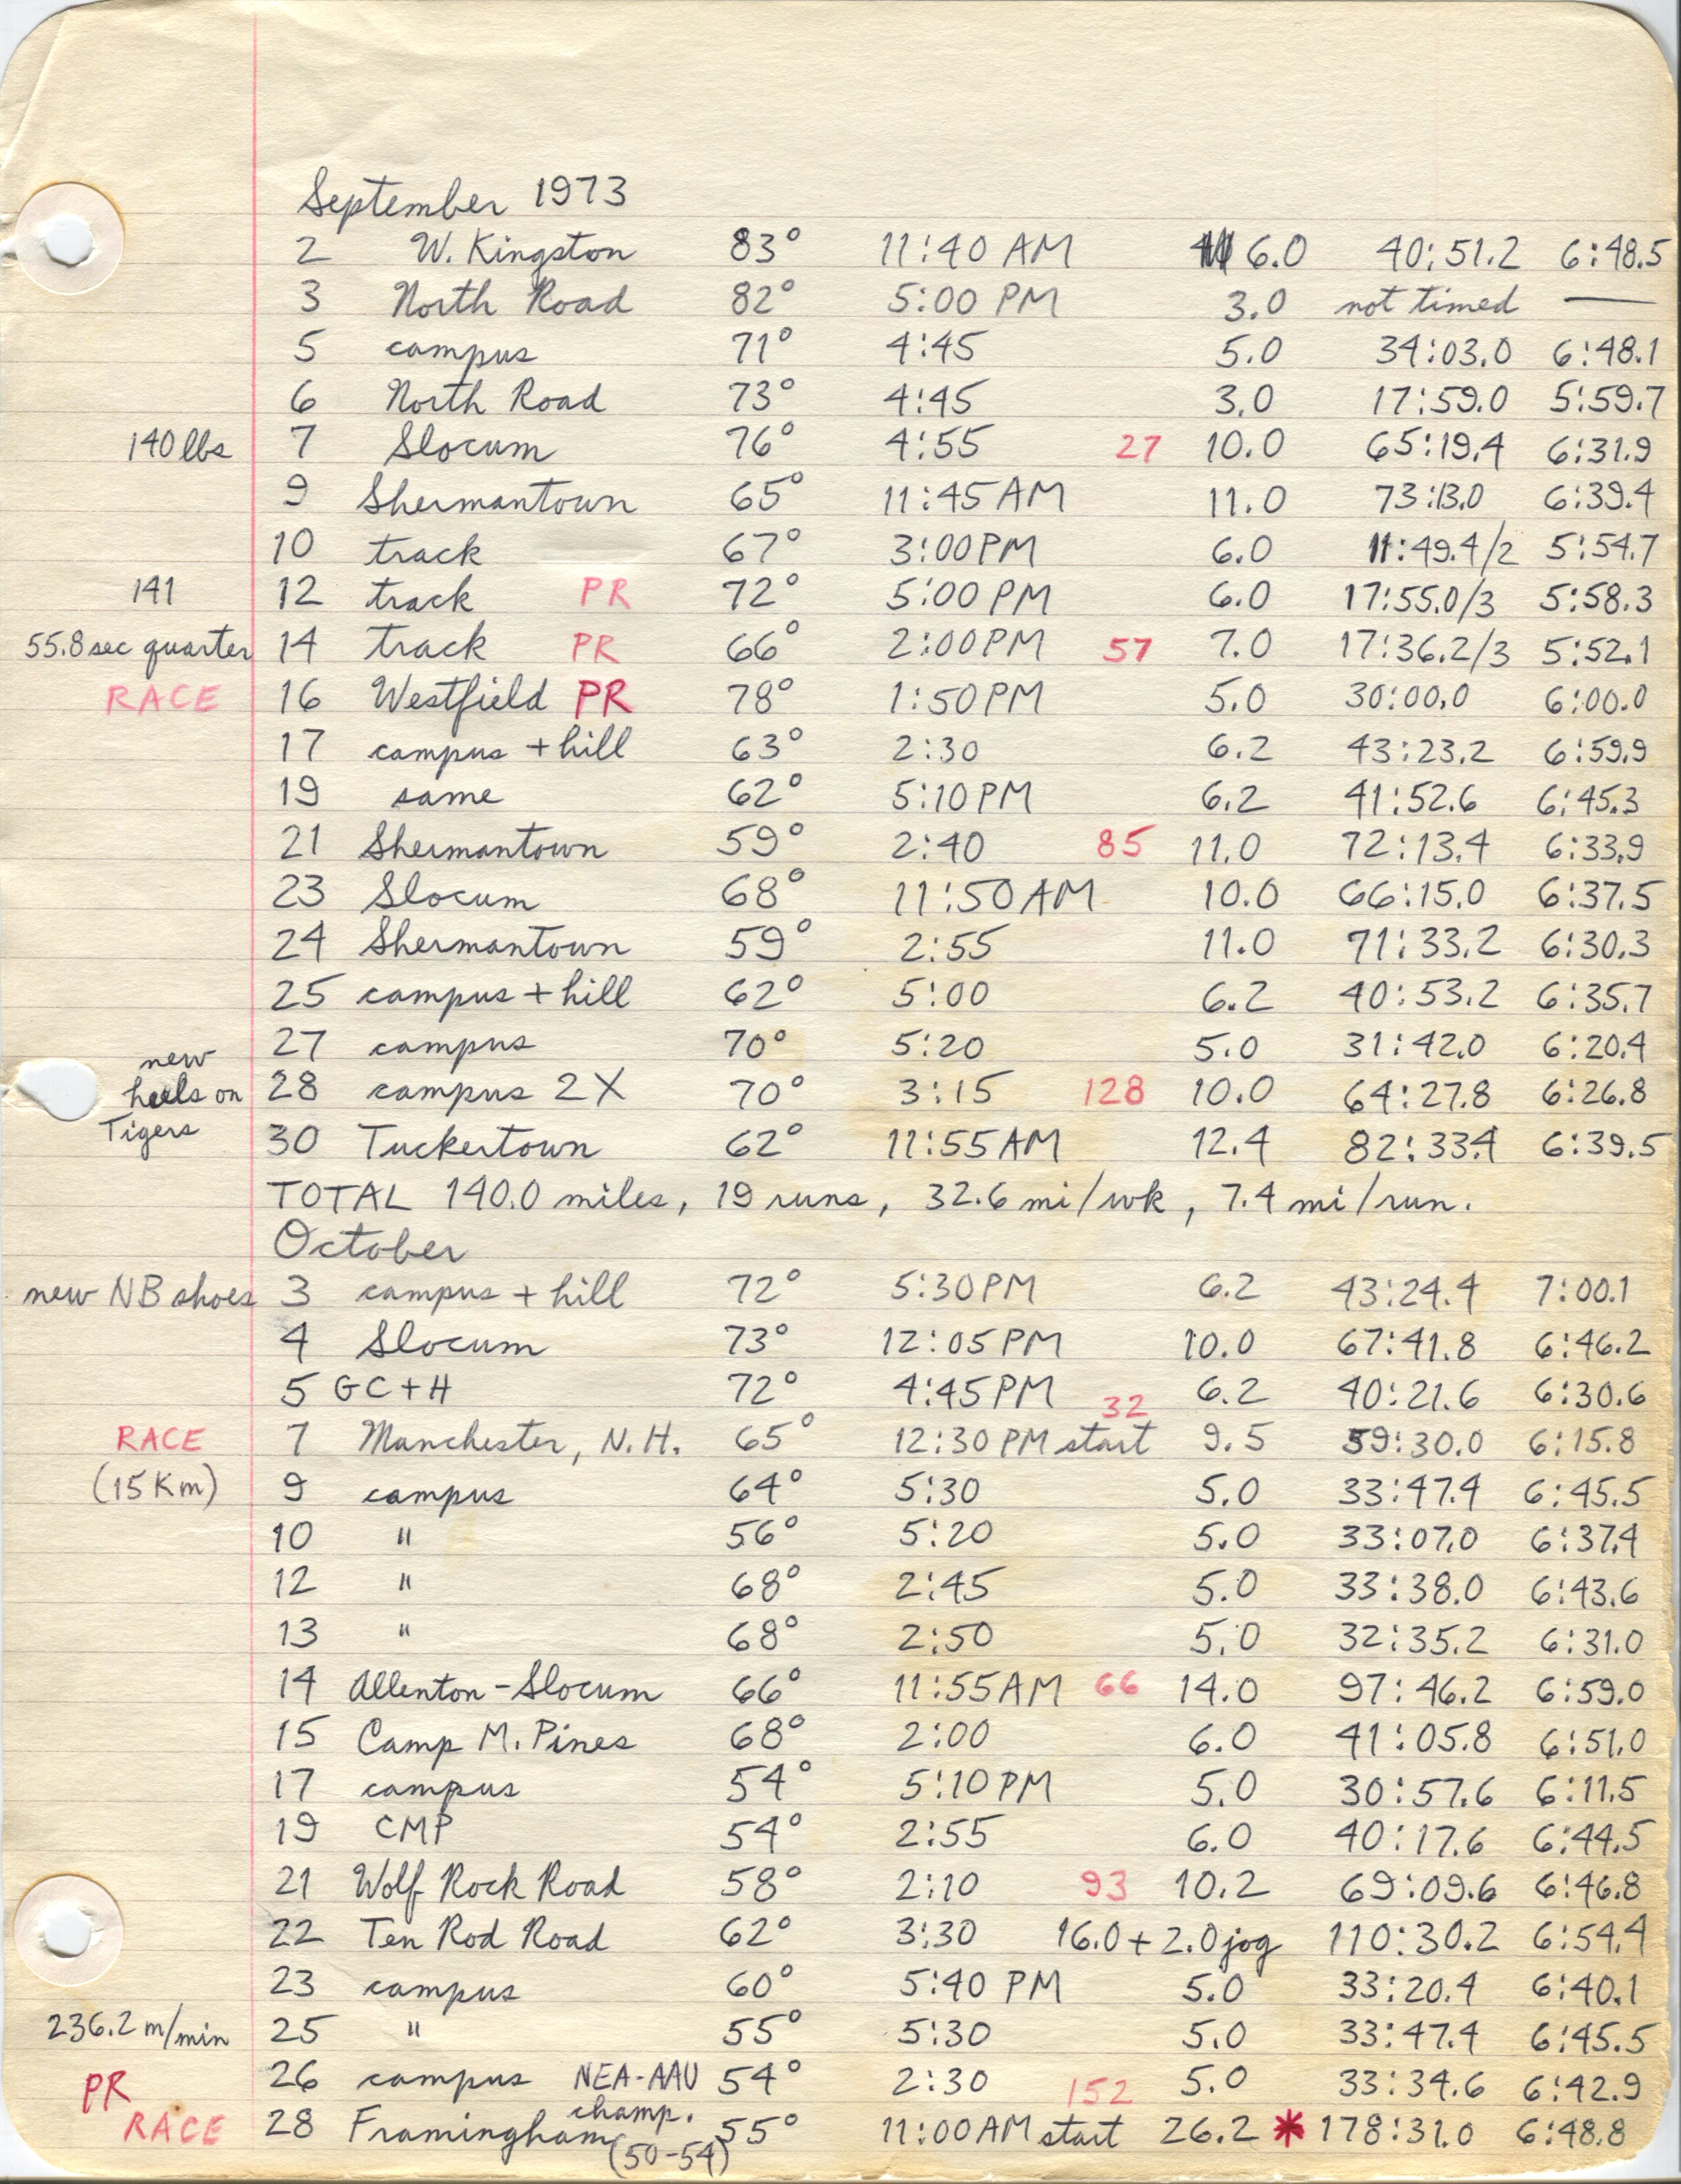 September 1973
2 W. Kingston 83° 11:40 AM 6.0 40:51.2 6:48.5
3 North Road 82° 5:00 PM 3.0 not timed —
5 campus 71° 4:45 5.0 34:03.0 6:48.1
6 North Road 73° 4:45 3.0 17:59.0 5:59.7
140 lbs 7 Slocum 76° 4:55 27 10.0 65:19.4 6:31.9
9 Shermantown 65° 11:45 AM 11.0 73:13.0 6:39.4
10 track 67° 3:00 PM 6.0 11:49.4/2 5:54.7
141 12 track PR 72° 5:00 PM 6.0 17:55.0/3 5:58.3
55.8 sec quarter 14 track PR 66° 2:00 PM 57 7.0 17:36.2/3 5:52.1
RACE 16 Westfield PR 78° 1:50 PM 5.0 30:00.0 6:00.0
17 campus + hill 63° 2:30 6.2 43:23.2 6:59.9
19 same 62° 5:10 PM 6.2 41:52.6 6:45.3
21 Shermantown 59° 2:40 85 11.0 72:13.4 6:33.9
23 Slocum 68° 11:50 AM 10.0 66:15.0 6:37.5
24 Shermantown 59° 2:55 11.0 71:33.2 6:30.3
25 campus + hill 62° 5:00 6.2 40:53.2 6:35.7
27 campus 70° 5:20 5.0 31:42.0 6:20.4
new
heels on 28 campus 2X 70° 3:15 128 10.0 64:27.8 6:26.8
Tigers
30 Tuckertown 62° 11:55 AM 12.4 82:33.4 6:39.5
TOTAL 140.0 miles, 19 runs, 32.6 mi/wk, 7.4 mi/run.
October
new NB shoes 3 campus + hill 72° 5:30 PM 6.2 43:24.4 7:00.1
4 Slocum 73° 12:05 PM 10.0 67:41.8 6:46.2
5 GC+H 72° 4:45 PM 32 6.2 40:21.6 6:30.6
RACE 7 Manchester, N.H. 65° 12:30 PM start 9.5 59:30.0 6:15.8
(15 Km) 9 campus 64° 5:30 5.0 33:47.4 6:45.5
10 " 56° 5:20 5.0 33:07.0 6:37.4
12 " 68° 2:45 5.0 33:38.0 6:43.6
13 " 68° 2:50 5.0 32:35.2 6:31.0
14 Allenton-Slocum 66° 11:55 AM 66 14.0 97:46.2 6:59.0
15 Camp M. Pines 68° 2:00 6.0 41:05.8 6:51.0
17 campus 54° 5:10 PM 5.0 30:57.6 6:11.5
19 CMP 54° 2:55 6.0 40:17.6 6:44.5
21 Wolf Rock Road 58° 2:10 93 10.2 69:09.6 6:46.8
22 Ten Rod Road 62° 3:30 16.0 + 2.0 jog 110:30.2 6:54.4
23 campus 60° 5:40 PM 5.0 33:20.4 6:40.1
236.2 m/min 25 " 55° 5:30 5.0 33:47.4 6:45.5
PR 26 campus 54° 2:30 152 5.0 33:34.6 6:42.9
NEA-AAU champ.
RACE 28 Framingham (50-54) 55° 11:00 AM start 26.2 * 178:31.0 6:48.8